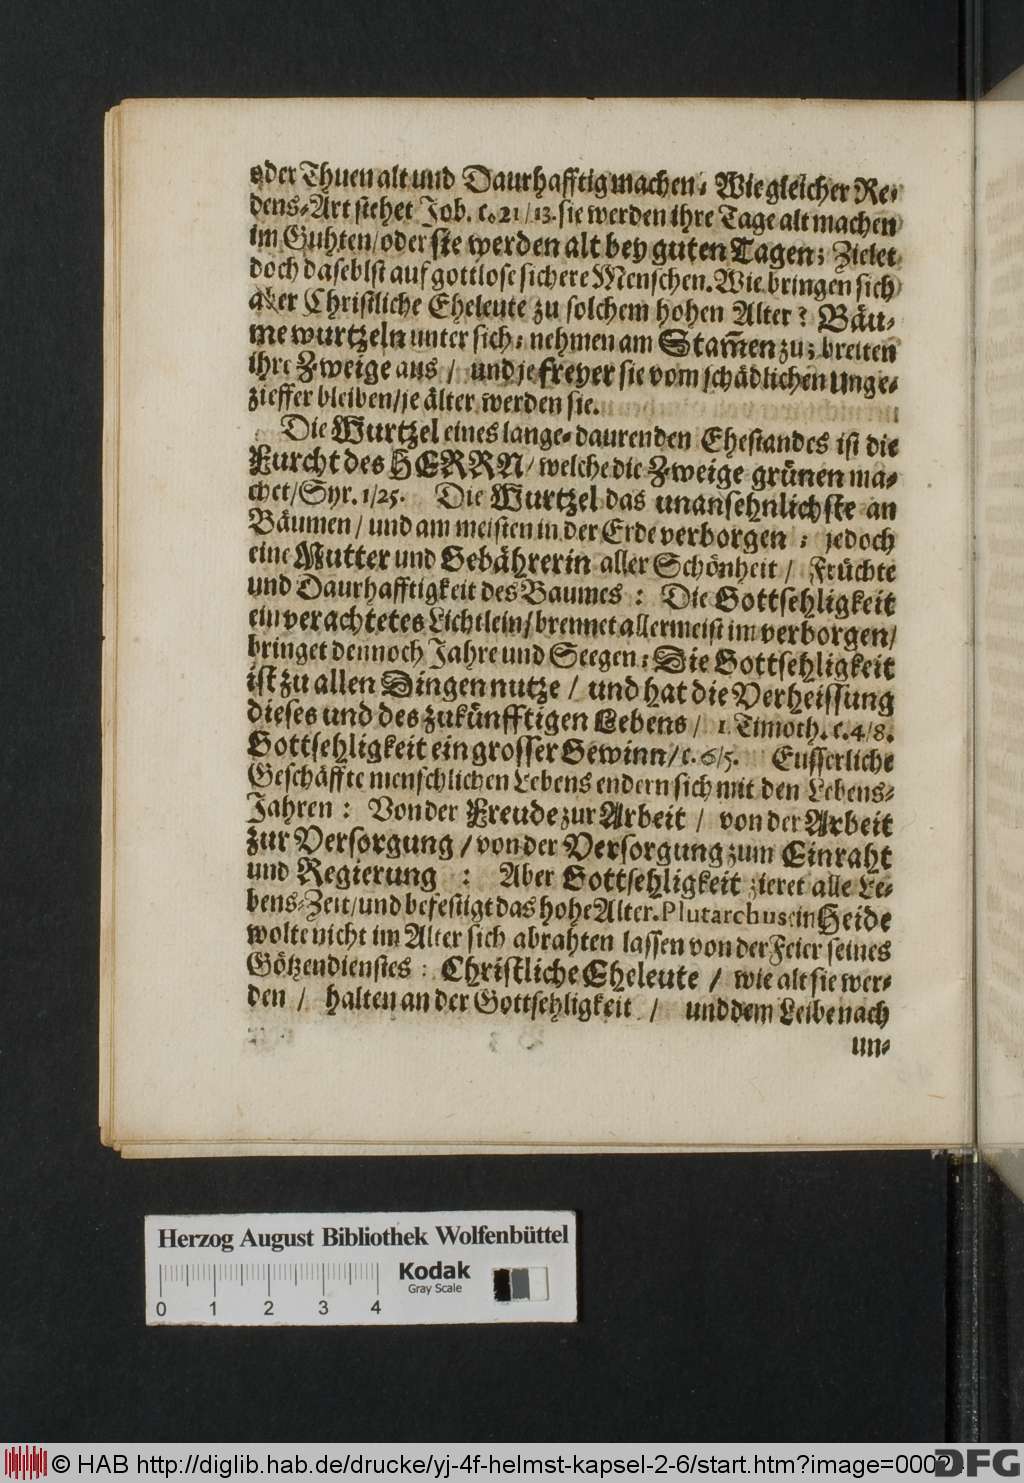 oder Thuen alt und Daurhafftig machen: Wie gleicher Re-
dens-Art stehet Job. c. 21/13. sie werden ihre Tage alt machen
im Guhten/ oder sie werden alt bey guten Tagen; Zielet
doch daseblst auf gottlose sichere Menschen. Wie bringen sich
aber Christliche Eheleute zu solchem hohen Alter? Bäu-
me wurtzeln unter sich: nehmen am Stam̃en zu; breiten
ihre Zweige aus / und je freyer sie vom schädlichen Unge-
zieffer bleiben/ je älter werden sie.
Die Wurtzel eines lange-daurenden Ehestandes ist die
Furcht des HERRN/ welche die Zweige grünen ma-
chet/ Syr. 1/25. Die Wurtzel das unansehnlichste an
Bäumen/ und am meisten in der Erde verborgen: jedoch
eine Mutter und Gebährerin aller Schönheit/ Früchte
und Daurhafftigkeit des Baumes: Die Gottsehligkeit
ein verachtetes Lichtlein/ brennet allermeist im verborgen/
bringet dennoch Jahre und Seegen: Die Gottsehligkeit
ist zu allen Dingen nutze / und hat die Verheissung
dieses und des zukünfftigen Lebens/ 1. Timoth. c. 4/8.
Gottsehligkeit ein grosser Gewinn/ c. 6/5. Eusserliche
Geschäffte menschlichen Lebens endern sich mit den Lebens-
Jahren: Von der Freude zur Arbeit / von der Arbeit
zur Versorgung / von der Versorgung zum Einraht
und Regierung: Aber Gottsehligkeit zieret alle Le-
bens-Zeit/ und befestigt das hohe Alter. Plutarchus ein Heide
wolte nicht im Alter sich abrahten lassen von der Feier seines
Götzendienstes: Christliche Eheleute / wie alt sie wer-
den / halten an der Gottsehligkeit / und dem Leibe nach
un-
Herzog August Bibliothek Wolfenbüttel
Kodak
Gray Scale
0 1 2 3 4
© HAB http://diglib.hab.de/drucke/yj-4f-helmst-kapsel-2-6/start.htm?image=00021
DFG